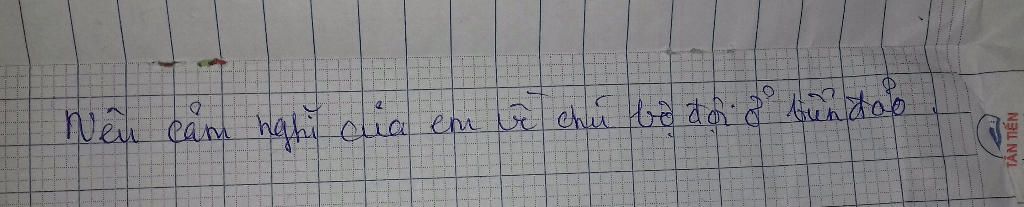 Nêu cảm nghĩ của em về chú bộ đội ở biển đảo.
TÂN TIẾN